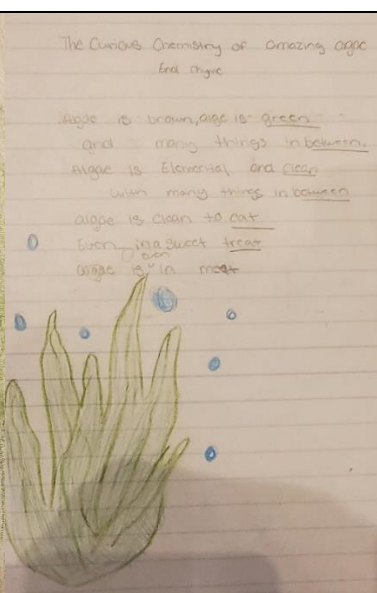 The Curious Chemistry of amazing algae
End rhyme
Algae is brown, algae is green
and many things in between.
Algae is Elemental and clean
with many things in between
algae is clean to eat
Even in a sweet treat
algae is even in meat